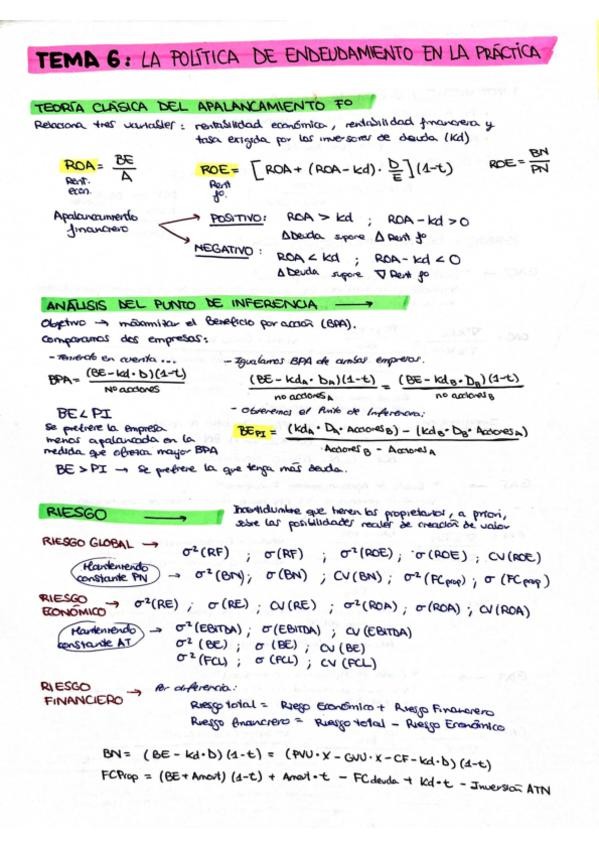 TEMA 6: LA POLÍTICA DE ENDEUDAMIENTO EN LA PRÁCTICA
TEORÍA CLÁSICA DEL APALANCAMIENTO Fo
Relaciona tres variables: rentabilidad económica, rentabilidad financiera y
tasa exigida por los inversores de deuda (Kd)
ROA = BE / A
Rent. econ.
ROE = [ROA + (ROA - Kd) · D/E] (1-t)
Rent fo.
ROE = BN / PN
Apalancamiento financiero
POSITIVO: ROA > Kd ; ROA - Kd > 0
Δ Deuda supone Δ Rent fo
NEGATIVO: ROA < Kd ; ROA - Kd < 0
Δ Deuda supone ∇ Rent fo
ANÁLISIS DEL PUNTO DE INFERENCIA →
Objetivo → maximitar el Beneficio por acción (BPA).
Comparamos dos empresas:
- Teniendo en cuenta...
BPA = (BE - Kd · D)(1-t) / nº acciones
- Igualamos BPA de ambas empresas.
(BE - KdA · DA)(1-t) / nº acciones A = (BE - KdB · DB)(1-t) / nº acciones B
BE < PI
Se prefiere la empresa
menos apalancada en la
medida que ofrezca mayor BPA
- Obtenemos el Punto de Inferencia:
BE PI = (KdA · DA · Acciones B) - (KdB · DB · Acciones A) / Acciones B - Acciones A
BE > PI → Se prefiere la que tenga más deuda.
RIESGO →
Incertidumbre que tienen los propietarios, a priori,
sobre las posibilidades reales de creación de valor
RIESGO GLOBAL → σ²(RF) ; σ(RF) ; σ²(ROE) ; σ(ROE) ; CV(ROE)
Manteniendo constante PN → σ²(BN) ; σ(BN) ; CV(BN) ; σ²(FCprop) ; σ(FCprop)
RIESGO ECONÓMICO → σ²(RE) ; σ(RE) ; CV(RE) ; σ²(ROA) ; σ(ROA) ; CV(ROA)
Manteniendo constante AT → σ²(EBITDA) ; σ(EBITDA) ; CV(EBITDA)
σ²(BE) ; σ(BE) ; CV(BE)
σ²(FCL) ; σ(FCL) ; CV(FCL)
RIESGO FINANCIERO → Por diferencia:
Riesgo total = Riesgo Económico + Riesgo Financiero
Riesgo financiero = Riesgo total - Riesgo Económico
BN = (BE - Kd · D)(1-t) = (PVU · X - CVU · X - CF - Kd · D)(1-t)
FCProp = (BE + Amort)(1-t) + Amort · t - FCdeuda + Kd · t - Inversión ATN